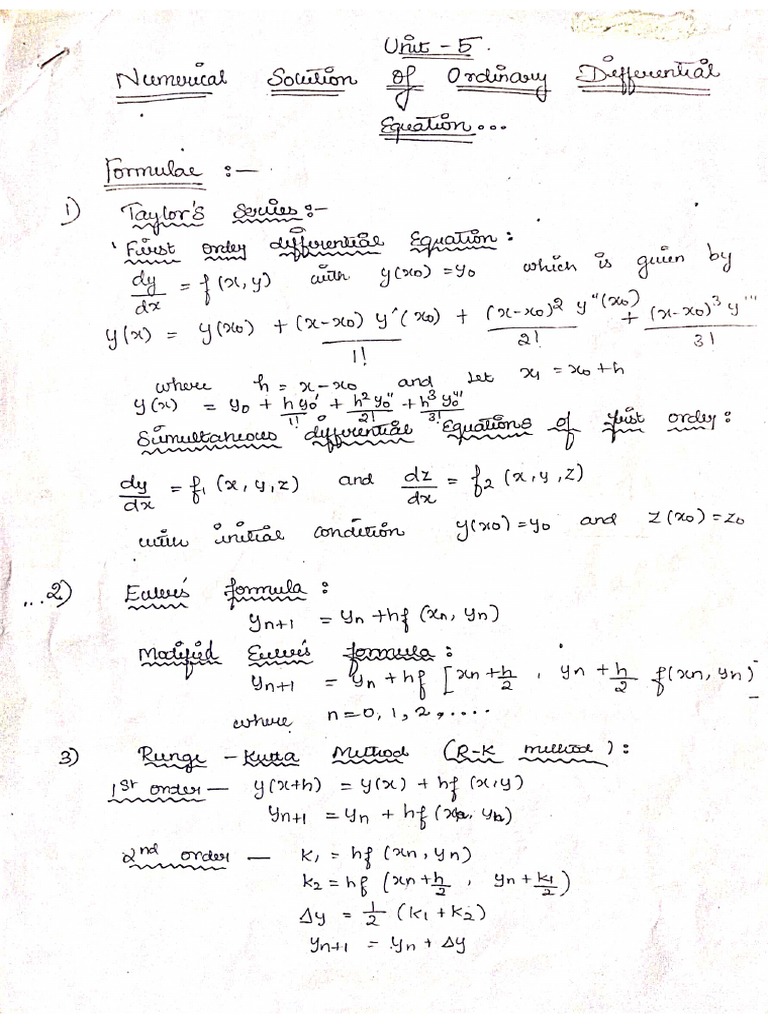 Unit - 5.
Numerical Solution of Ordinary Differential
Equation...
Formulae :-
1) Taylor's Series:-
First order differential Equation:
dy/dx = f(x,y) with y(x0)=y0 which is given by
y(x) = y(x0) + (x-x0) y'(x0)/1! + (x-x0)^2 y''(x0)/2! + (x-x0)^3 y'''/3!
where h = x-x0 and let x1 = x0+h
y(x) = y0 + hy0'/1! + h^2 y0''/2! + h^3 y0'''/3!
Simultaneous differential Equations of first order:
dy/dx = f1 (x,y,z) and dz/dx = f2 (x,y,z)
with initial condition y(x0)=y0 and z(x0)=z0
...2) Euler's formula:
yn+1 = yn +hf (xn, yn)
Modified Euler's formula:
yn+1 = yn +hf [xn+h/2 , yn + h/2 f(xn, yn)
where n=0,1,2,....
3) Runge - Kutta Method (R-K method):
1st order - y(x+h) = y(x) + hf (x,y)
yn+1 = yn + hf(xn, yn)
2nd order - k1 = hf (xn, yn)
k2 = hf (xn+h/2 , yn+k1/2)
Δy = 1/2 (k1+k2)
yn+1 = yn + Δy